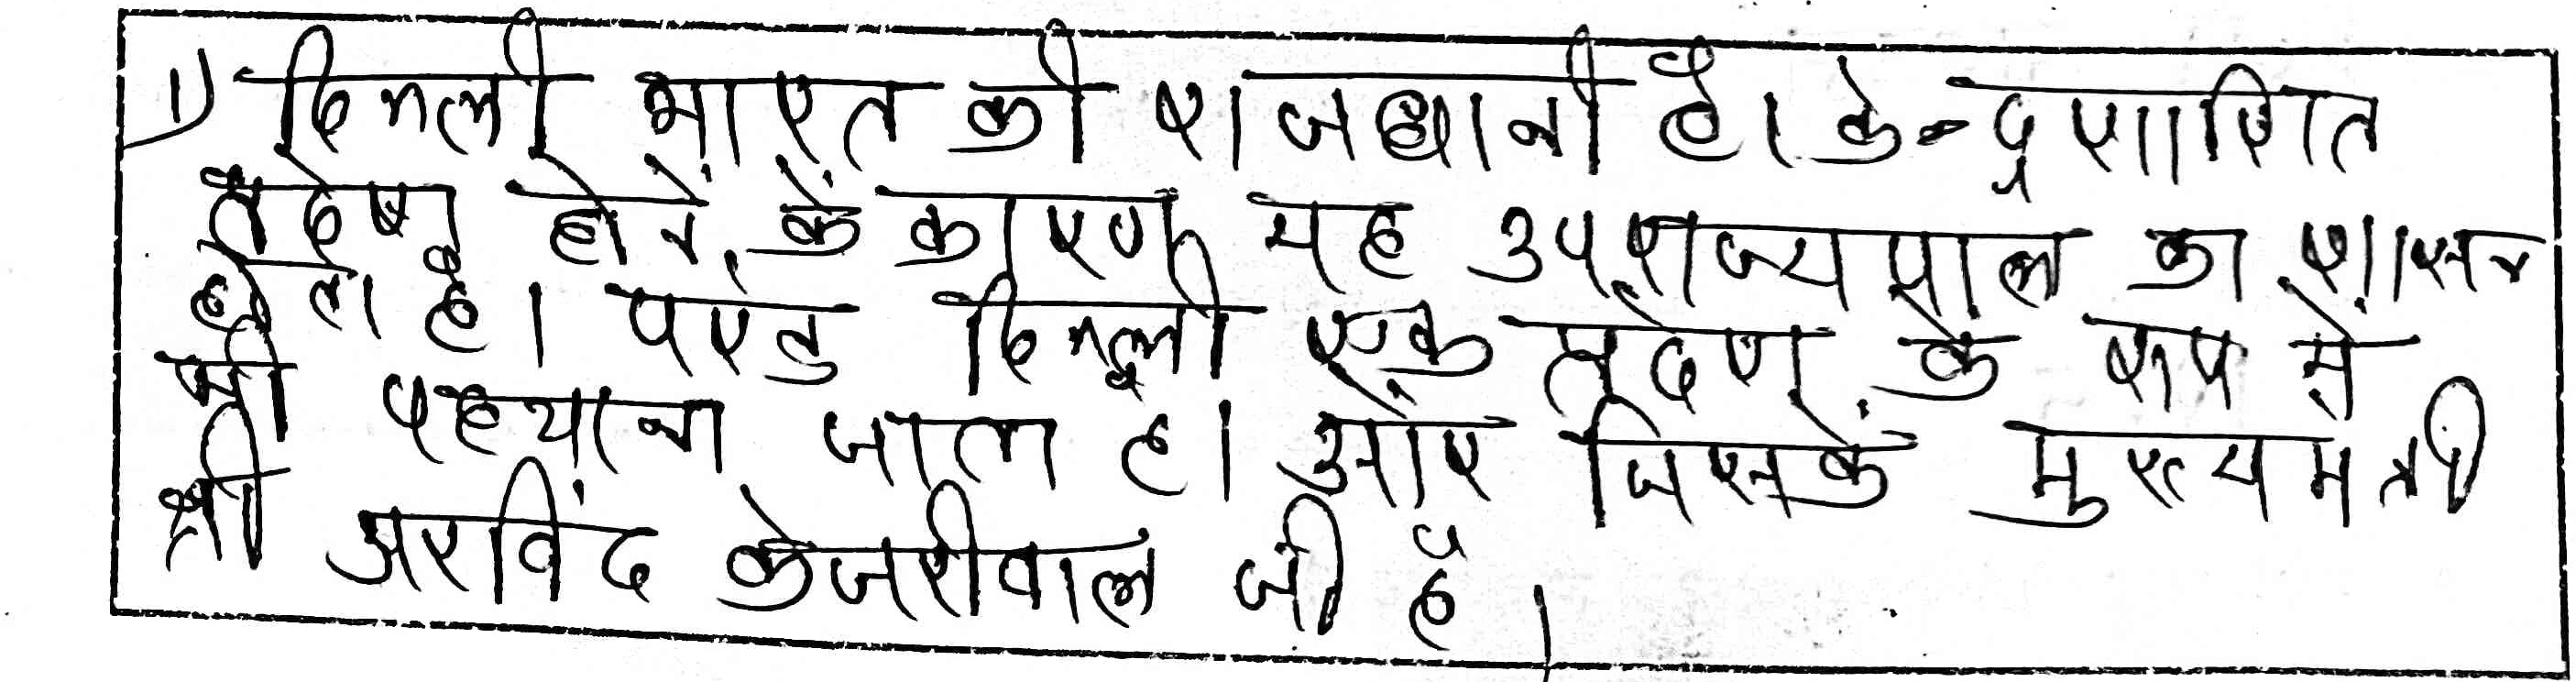 1) दिल्ली भारत की राजधानी है। केन्द्र शाशित
प्रदेश होने के कारण यह उपराज्यपाल का शासन
होता है। परंतु दिल्ली एक प्रदेश के रूप में
भी पहचाना जाता है। और जिसके मुख्यमंत्री
श्री अरविंद केजरीवाल जी है।